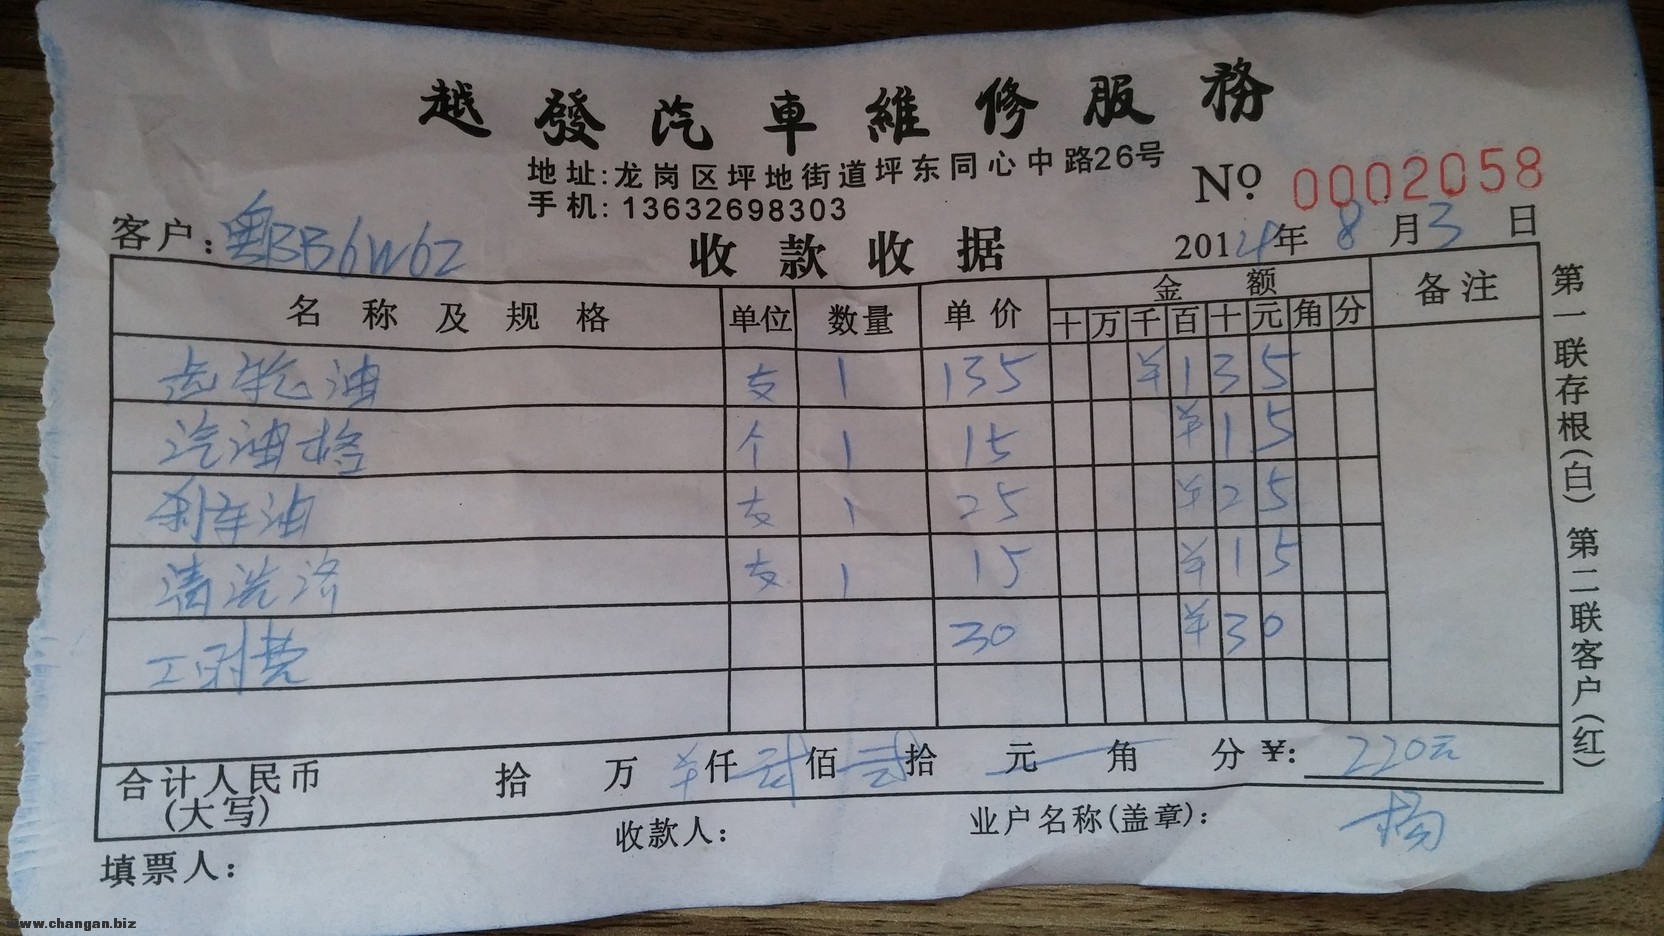 越發汽車維修服務
地址:龙岗区坪地街道坪东同心中路26号
手机: 13632698303
№ 0002058
客户: 粤BB6W62
收款收据
2014年 8月3日
名称及规格 单位 数量 单价 金额 备注
十 万 千 百 十 元 角 分
齿轮油 支 1 135 ¥135
汽油格 个 1 15 ¥15
刹车油 支 1 25 ¥25
清洗济 支 1 15 ¥15
工时费 30 ¥30
合计人民币 拾 万 ¥仟 贰佰 贰拾 元 角 分 ¥: 220元
(大写)
收款人: 业户名称(盖章): 杨
填票人:
第一联存根(白) 第二联客户(红)
www.changan.biz